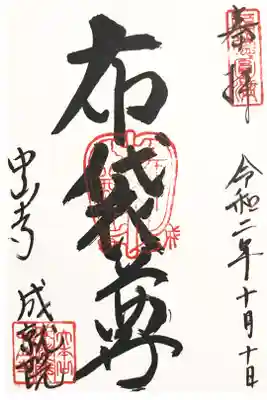 奉拝
令和二年十月十日
布袋尊
成就院